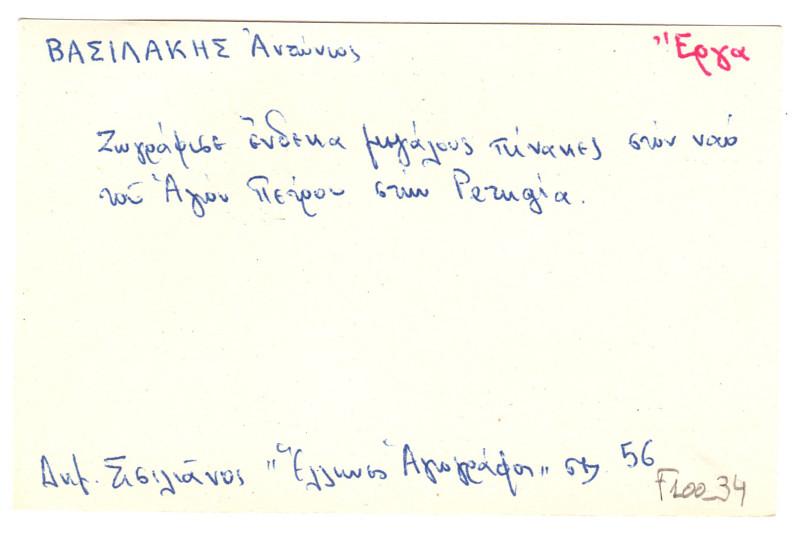 ΒΑΣΙΛΑΚΗΣ Ἀντώνιος
Ἔργα
Ζωγράφισε ἕνδεκα μεγάλους πίνακες στὸν ναὸ
τοῦ Ἁγίου Πέτρου στὴν Perugia.
Δημ. Σισιλιάνος „Ἕλληνες Ἁγιογράφοι„ σελ. 56
F100_34